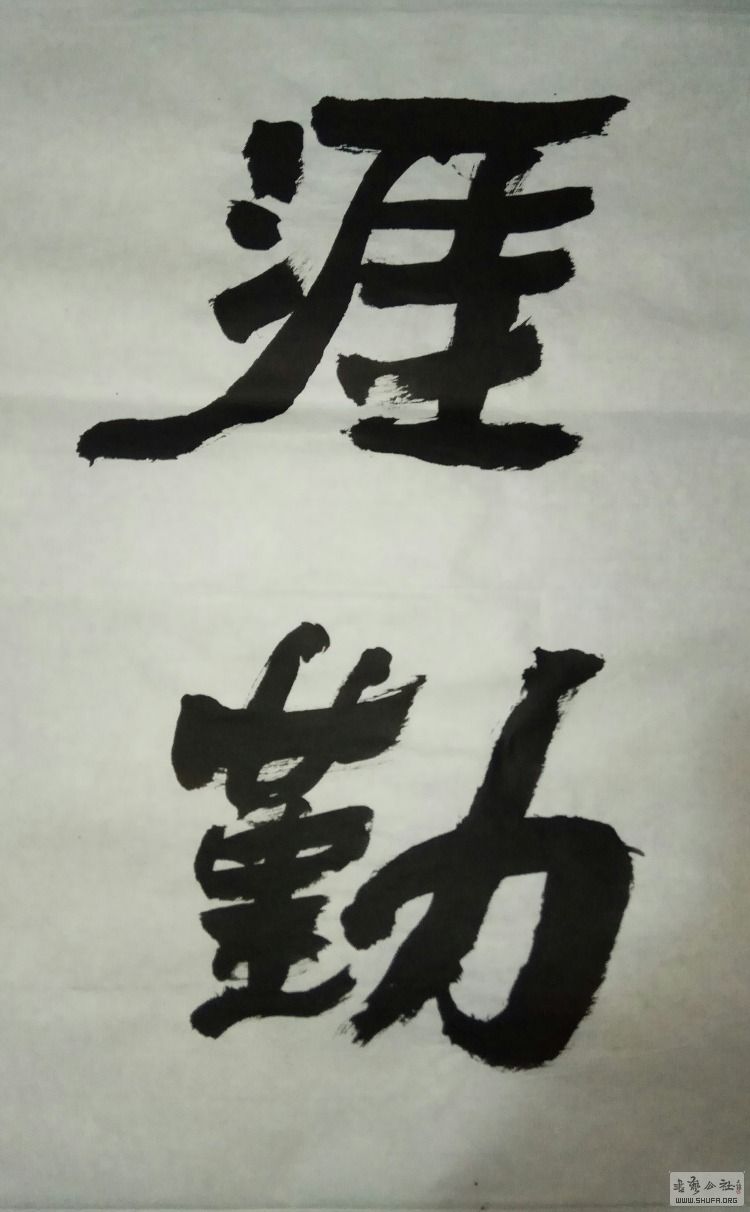 涯勤
书艺公社
WWW.SHUFA.ORG